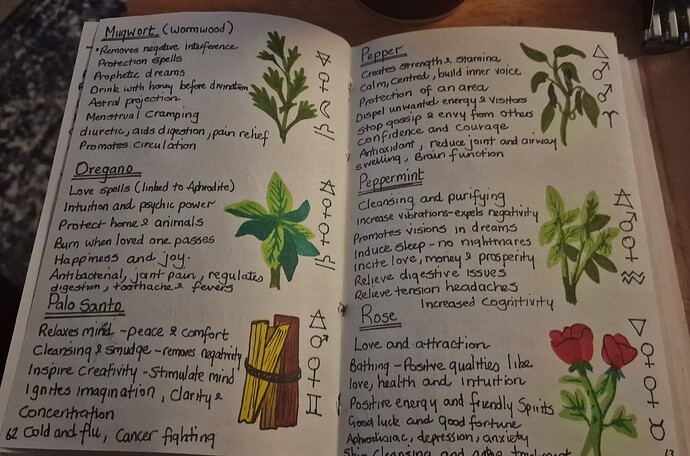 Mugwort (wormwood)
• Removes negative interference
Protection spells
Prophetic dreams
Drink with honey before divination
Astral projection
Menstrual Cramping
diuretic, aids digestion, pain relief
Promotes circulation
Oregano
Love spells (linked to Aphrodite)
Intuition and psychic power
Protect home & animals
Burn when loved one passes
Happiness and joy.
Antibacterial, joint pain, regulates
digestion, toothache & fevers
Palo Santo
Relaxes mind - peace & comfort
Cleansing & smudge - removes negativity
Inspire Creativity - Stimulate mind
Ignites imagination, clarity &
Concentration
Cold and flu, cancer fighting
62
Pepper
Creates strength & stamina
Calm, Centred, build inner voice
Protection of an area
Dispel unwanted energy & visitors
Stop gossip & envy from others
Confidence and courage
Antioxidant, reduce joint and airway
swelling, Brain function
Peppermint
Cleansing and purifying
increase vibrations - expels negativity
Promotes visions in dreams
Induce sleep - no nightmares
incite love, money & prosperity
Relieve digestive issues
Relieve tension headaches
Increased Cognitivity
Rose
Love and attraction
Bathing - Positive qualities like
love, health and intuition
Positive energy and friendly Spirits
Good luck and Good fortune
Aphrodisiac, depression, anxiety
Skin Cleansing and